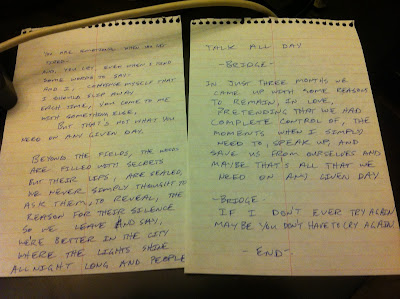 YOU ARE SOMETHING, WHEN YOU GET
TIRED.
AND, YOU CRY, EVEN WHEN I FIND
SOME WORDS TO SAY.
AND I, CONVINCE MYSELF THAT
I SHOULD SLIP AWAY
EACH TIME, YOU COME TO ME
WITH SOMETHING ELSE,
BUT THAT'S NOT WHAT YOU
NEED ON ANY GIVEN DAY.
BEYOND THE FIELDS, THE WOODS
ARE FILLED WITH SECRETS
BUT THEIR LIPS, ARE SEALED,
WE NEVER SIMPLY THOUGHT TO
ASK THEM, TO REVEAL, THE
REASON FOR THEIR SILENCE
SO WE LEAVE AND SAY,
WE'RE BETTER IN THE CITY
WHERE THE LIGHTS SHINE
ALL NIGHT LONG AND PEOPLE
TALK ALL DAY
-BRIDGE-
IN JUST THREE MONTHS WE
CAME UP WITH SOME REASON
TO REMAIN, IN LOVE,
PRETENDING THAT WE HAD
COMPLETE CONTROL OF, THE
MOMENTS WHEN I SIMPLY
NEED TO, SPEAK UP, AND
SAVE US FROM OURSELVES AND
MAYBE THAT'S ALL THAT WE
NEED ON ANY GIVEN DAY.
-BRIDGE-
IF I DON'T EVER TRY AGAIN
MAYBE YOU DON'T HAVE TO CRY AGAIN.
-END-